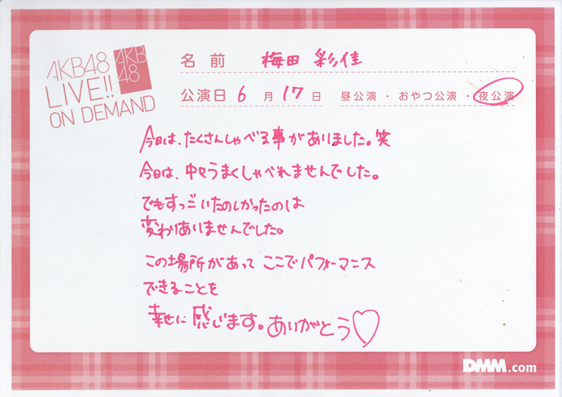 AKB48
LIVE!!
ON DEMAND
AKB
48
名前 梅田 彩佳
公演日 6 月 17 日 昼公演・おやつ公演・夜公演
今日は、たくさんしゃべる事がありました。笑
今日は、中々うまくしゃべれませんでした。
でもすっごいたのしかったのは
変わりあいませんでした。
この場所があって ここでパフォーマンス
できることを
幸せに 感じます。ありがとう♡
DMM.com